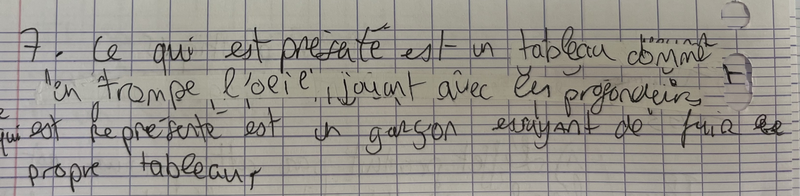 7. Ce qui est présenté est un tableau comme
"en trompe l'oeil", jouant avec les profondeurs
qui est représenté est un garçon essayant de fuir ce
propre tableau,